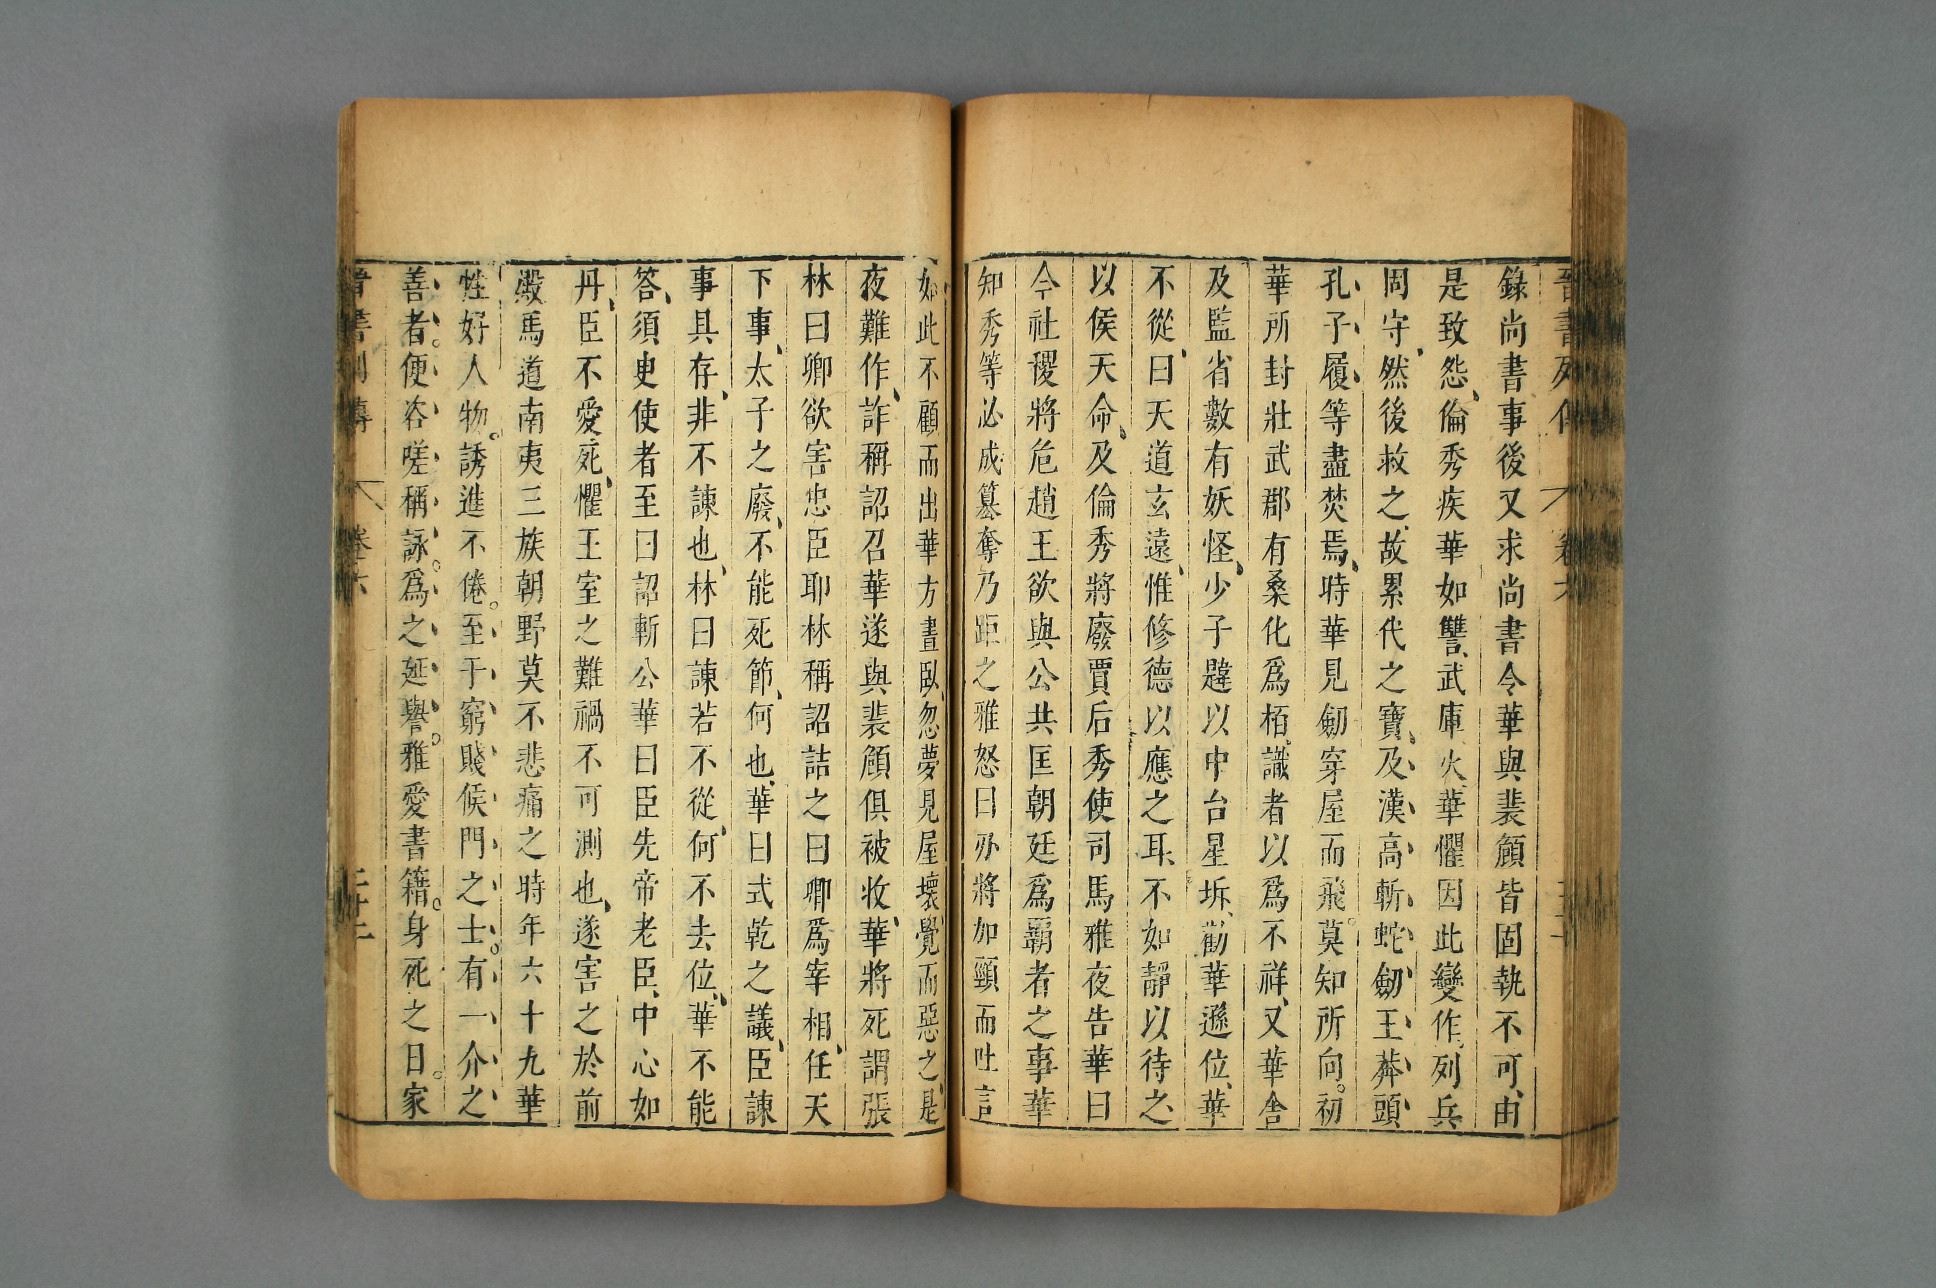 錄尚書事後又求尚書令華與裴頠皆固執不可由
是致怨倫秀疾華如讐武庫火華懼因此變作列兵
固守然後救之故累代之寶及漢高斬蛇劒王莽頭
孔子履等盡焚焉時華見劒穿屋而飛莫知所向初
華所封壯武郡有桑化爲栢識者以爲不祥又華舍
及監省數有妖怪少子韙以中台星坼勸華遜位華
不從曰天道玄遠惟修德以應之耳不如靜以待之
以俟天命及倫秀將廢賈后秀使司馬雅夜告華曰
今社稷將危趙王欲與公共匡朝廷爲覇者之事華
知秀等必成簒奪乃距之雅怒曰刃將加頸而吐言
如此不顧而出華方晝臥忽夢見屋壞覺而惡之是
夜難作詐稱詔召華遂與裴頠俱被收華將死謂張
林曰卿欲害忠臣耶林稱詔詰之曰卿爲宰相任天
下事太子之廢不能死節何也華曰式乾之議臣諫
事具存非不諫也林曰諫若不從何不去位華不能
答須臾使者至曰詔斬公華曰臣先帝老臣中心如
丹臣不愛死懼王室之難禍不可測也遂害之於前
殿馬道南夷三族朝野莫不悲痛之時年六十九華
性好人物誘進不倦至于窮賤候門之士有一介之
善者便咨嗟稱詠爲之延譽雅愛書籍身死之日家
晉書列傳 卷六 二十二